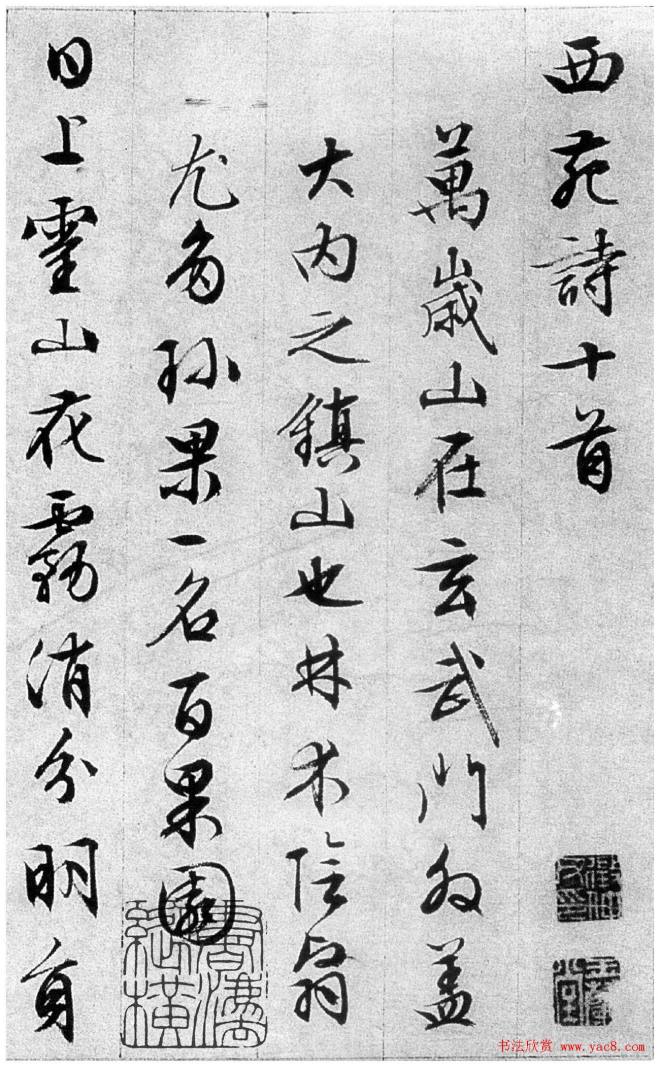 西苑詩十首
萬歲山在玄武門外蓋
大内之鎮山也林木陰翳
尤多珎果一名百果園
日上靈山花霧消分明員
书法欣赏 www.yac8.com